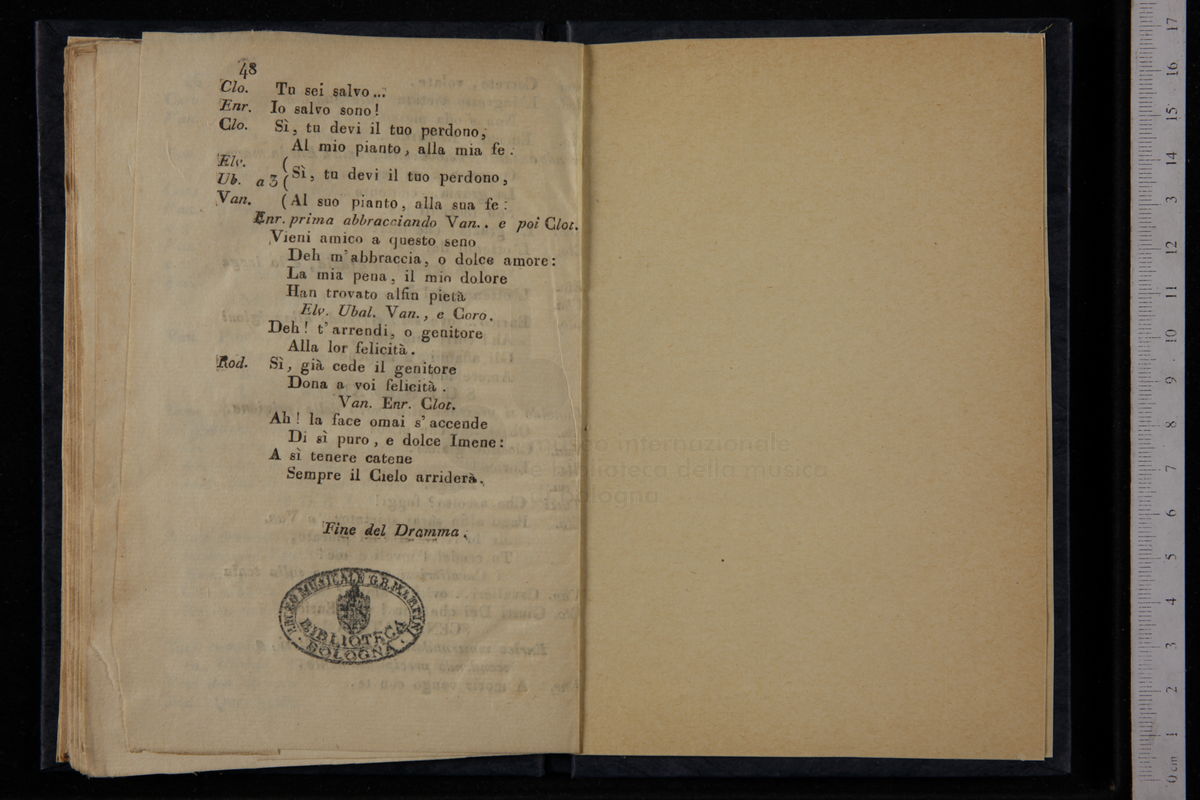 48
Clo. Tu sei salvo...
Enr. Io salvo sono!
Clo. Sì, tu devi il tuo perdono,
Al mio pianto, alla mia fe.
Elv. (
Ub. a 3 ( Sì, tu devi il tuo perdono,
Van. (Al suo pianto, alla sua fe:
Enr. prima abbracciando Van.. e poi Clot.
Vieni amico a questo seno
Deh m'abbraccia, o dolce amore:
La mia pena, il mio dolore
Han trovato alfin pietà
Elv. Ubal. Van., e Coro.
Deh! t'arrendi, o genitore
Alla lor felicità.
Rod. Sì, già cede il genitore
Dona a voi felicità.
Van. Enr. Clot.
Ah! la face omai s'accende
Di sì puro, e dolce Imene:
A sì tenere catene
Sempre il Cielo arriderà.
Fine del Dramma.
LICEO MUSICALE G.B. MARTINI
BIBLIOTECA
BOLOGNA
museo internazionale
e biblioteca della musica
bologna
0 cm 1 2 3 4 5 6 7 8 9 10 11 12 13 14 15 16 17